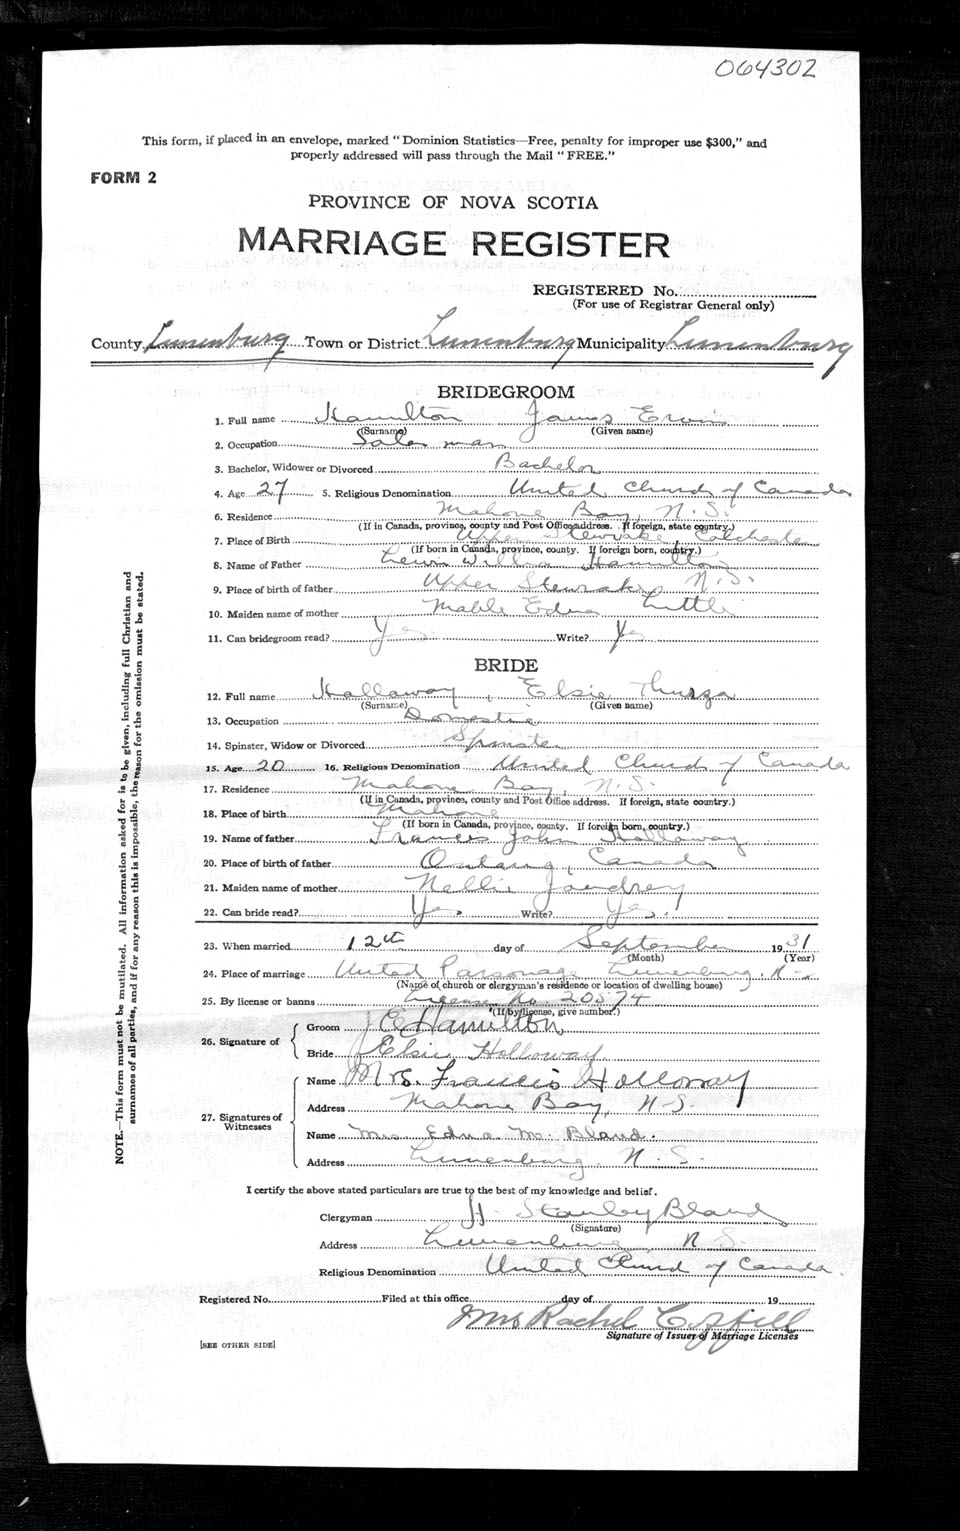 064302
This form, if placed in an envelope, marked "Dominion Statistics—Free, penalty for improper use $300," and
properly addressed will pass through the Mail "FREE."
FORM 2
PROVINCE OF NOVA SCOTIA
MARRIAGE REGISTER
REGISTERED No.
(For use of Registrar General only)
County Lunenburg Town or District Lunenburg Municipality Lunenburg
BRIDEGROOM
1. Full name Hamilton James Ervin
(Surname) (Given name)
2. Occupation Sales man
3. Bachelor, Widower or Divorced Bachelor
4. Age 27 5. Religious Denomination United Church of Canada
6. Residence Mahone Bay, N.S.
(If in Canada, province, county and Post Office address. If foreign, state country.)
7. Place of Birth Upper Stewiacke, Colchester
(If born in Canada, province, county. If foreign born, country.)
8. Name of Father Hamilton
9. Place of birth of father Upper Stewiacke N.S.
10. Maiden name of mother Mable Edna Little
11. Can bridegroom read? Yes Write? Yes
BRIDE
12. Full name Hallaway, Elsie Thurza
(Surname) (Given name)
13. Occupation Domestic
14. Spinster, Widow or Divorced Spinster
15. Age 20 16. Religious Denomination United Church of Canada
17. Residence Mahone Bay, N.S.
(If in Canada, province, county and Post Office address. If foreign, state country.)
18. Place of birth Mahone
(If born in Canada, province, county. If foreign born, country.)
19. Name of father Francis John Holloway
20. Place of birth of father Ontario, Canada
21. Maiden name of mother Nellie Jaudrey
22. Can bride read? Yes. Write? Yes.
23. When married 12th day of September 1931
(Month) (Year)
24. Place of marriage United Parsonage Lunenburg, N-S
(Name of church or clergyman's residence or location of dwelling house)
25. By license or banns License No 20574
(If by license, give number.)
26. Signature of
Groom J E Hamilton
Bride Elsie Holloway
27. Signatures of Witnesses
Name Mrs. Francis Holloway
Address Mahone Bay, N-S.
Name Mrs Edna M. Bland.
Address Lunenburg, N.S.
I certify the above stated particulars are true to the best of my knowledge and belief.
Clergyman H. Stanley Bland
(Signature)
Address Lunenburg, N.S.
Religious Denomination United Church of Canada.
Registered No. Filed at this office day of 19
Mrs Rachel
Signature of Issuer of Marriage Licenses
[SEE OTHER SIDE]
NOTE.—This form must not be mutilated. All information asked for is to be given, including full Christian and
surnames of all parties, and if for any reason this is impossible, the reason for the omission must be stated.